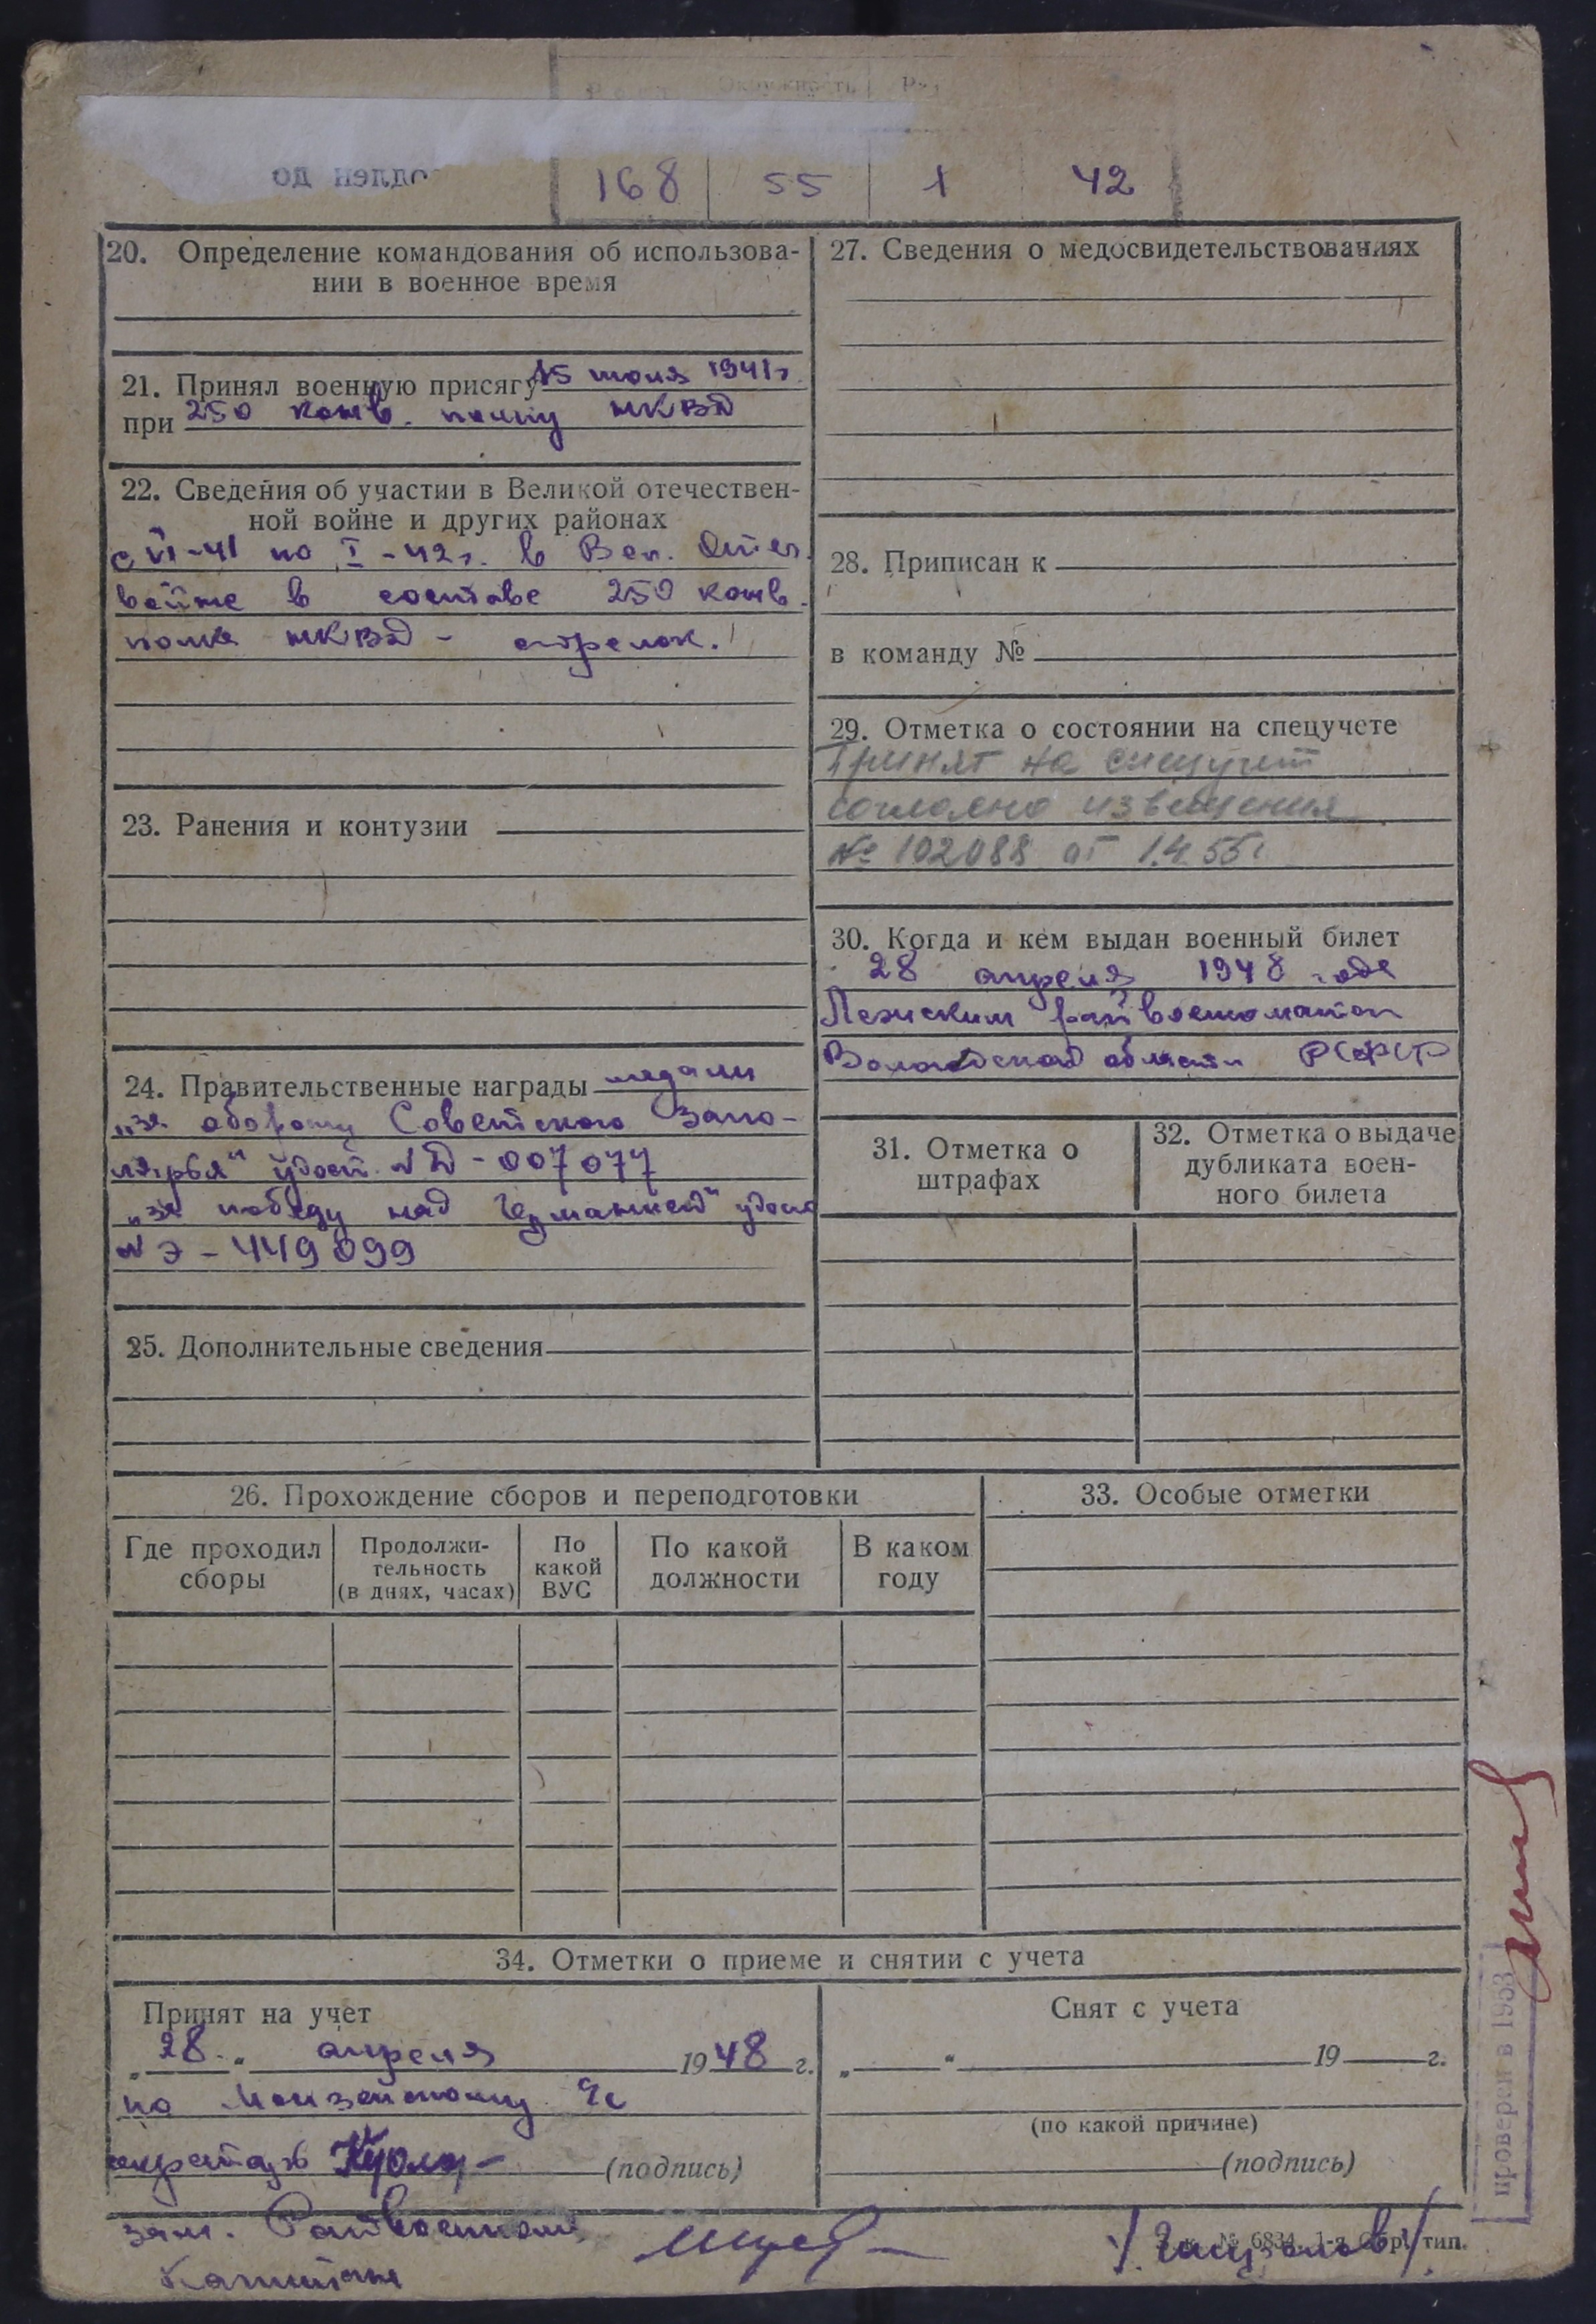 168 55 1 42
20. Определение командования об использова-
нии в военное время
21. Принял военную присягу 15 июля 1941г.
при 250 конв. полку НКВД
22. Сведения об участии в Великой отечествен-
ной войне и других районах
с VI-41 по I-42г. в Вел. Отеч.
войне в составе 250 конв.
полка НКВД - стрелок.
23. Ранения и контузии
24. Правительственные награды медали
„за оборону Советского Запо-
лярья" удост. № Д-007077
„за победу над Германией" удост
№ Э-449099
25. Дополнительные сведения
27. Сведения о медосвидетельствованиях
28. Приписан к
в команду №
29. Отметка о состоянии на спецучете
Принят на спецучет
согласно извещения
№ 102088 от 1.4.55г.
30. Когда и кем выдан военный билет
28 апреля 1948 года
Лежским райвоенкоматом
Вологодской области РСФСР
31. Отметка о
штрафах
32. Отметка о выдаче
дубликата воен-
ного билета
26. Прохождение сборов и переподготовки
Где проходил
сборы
Продолжи-
тельность
(в днях, часах)
По
какой
ВУС
По какой
должности
В каком
году
33. Особые отметки
34. Отметки о приеме и снятии с учета
Принят на учет
„28" апреля 1948 г.
по Монзенскому
секретарь
(подпись)
Снят с учета
„ " 19 г.
(по какой причине)
(подпись)
зам. Райвоенкома
Капитан
№ 6834 тип.
проверен в 1953